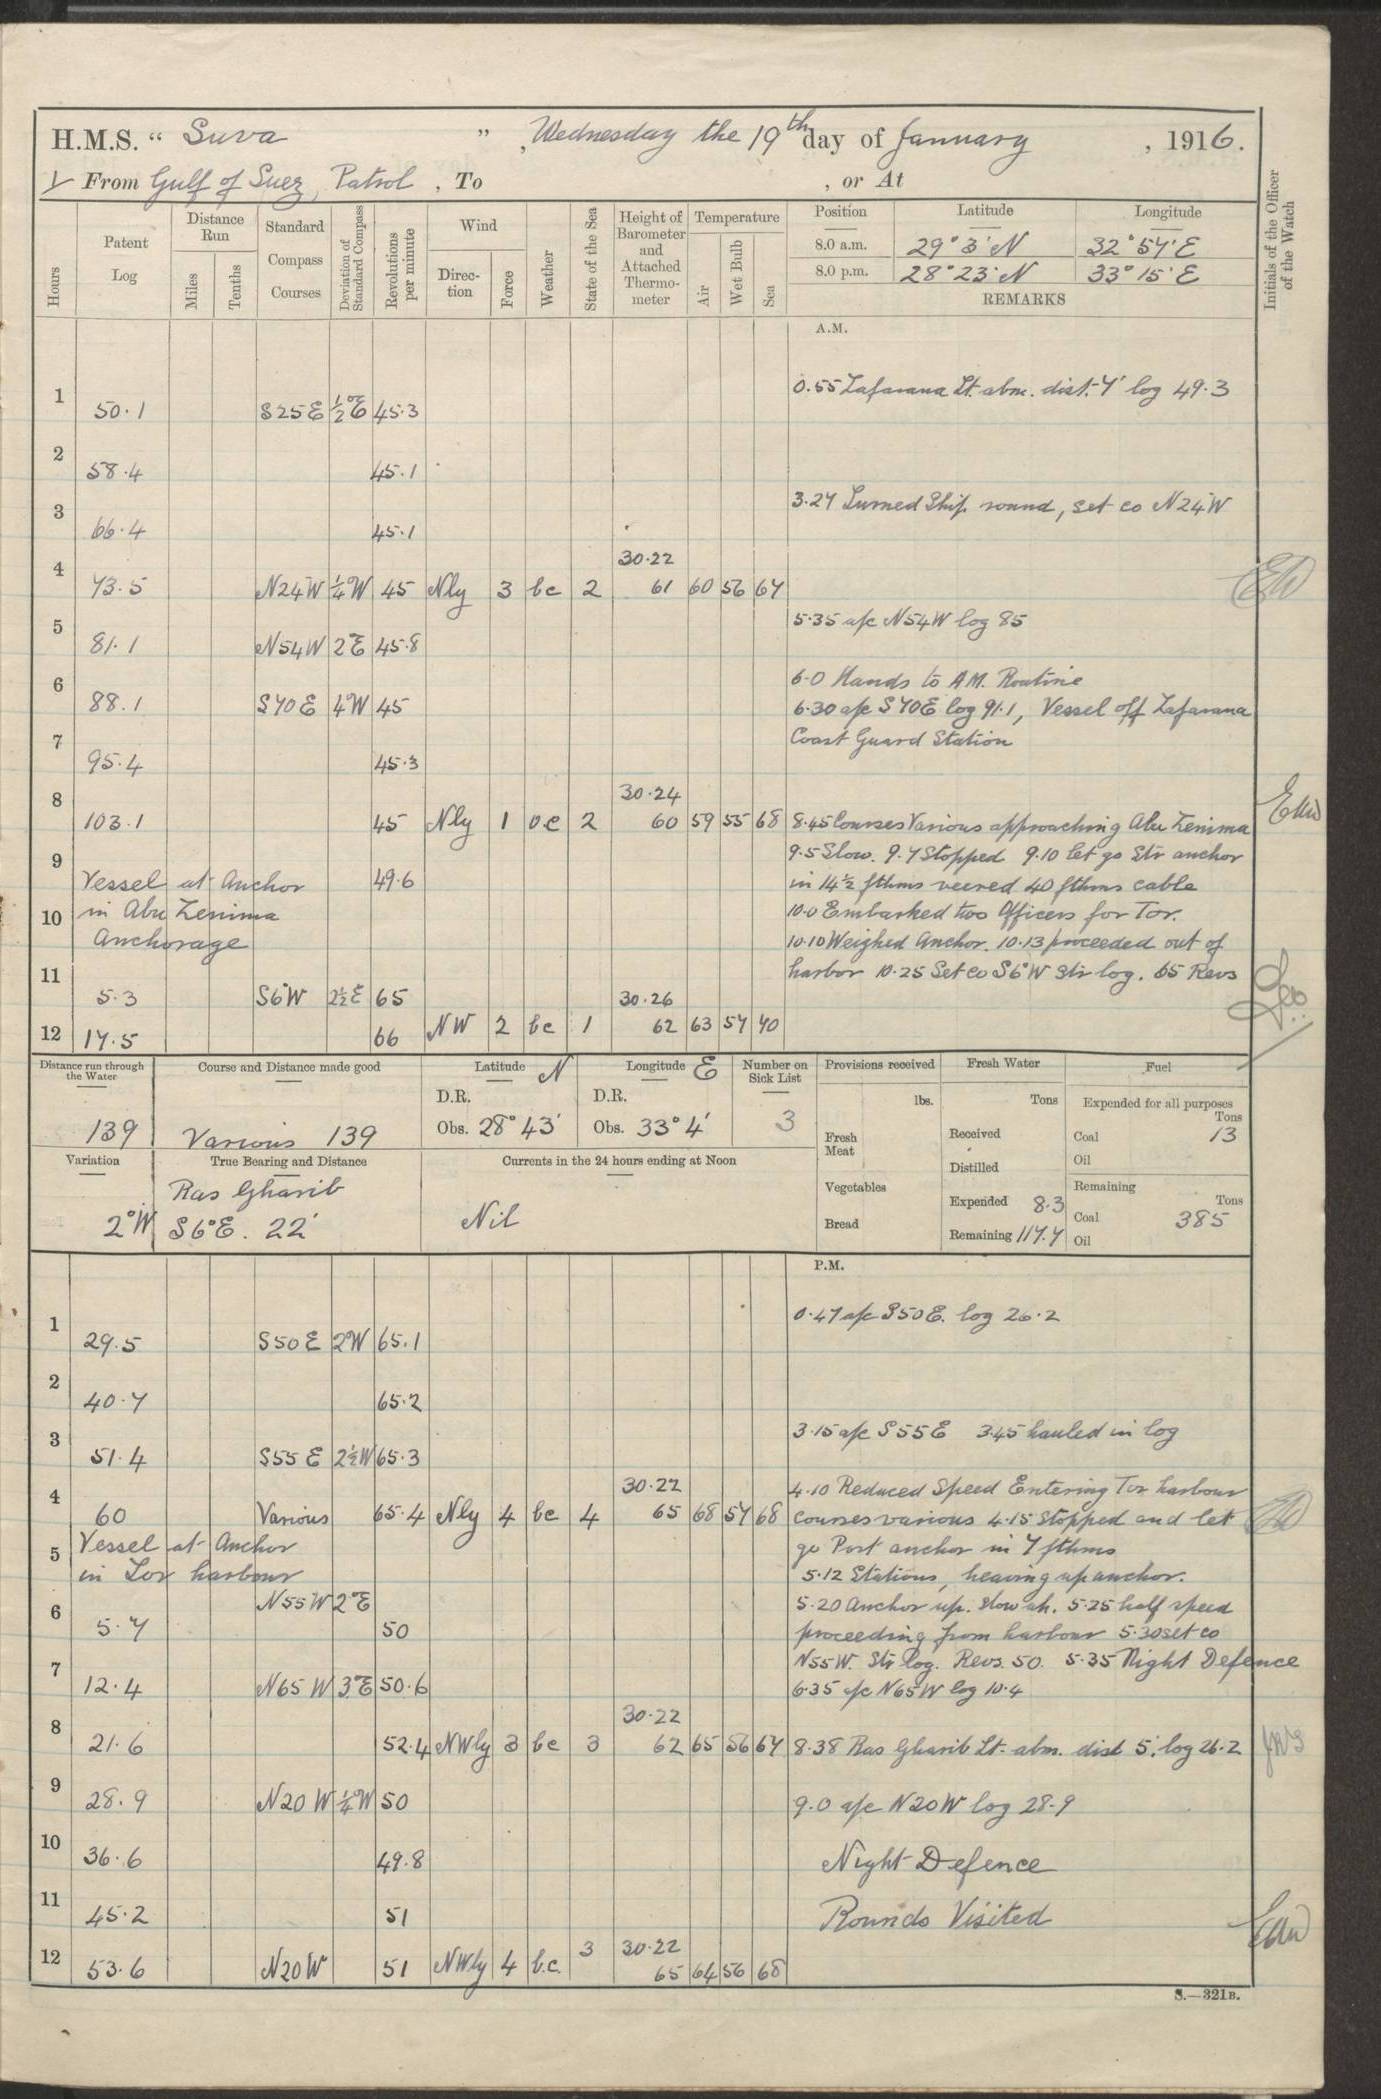 H.M.S. “ Suva ” , Wednesday the 19th day of January , 1916.
From Gulf of Suez, Patrol , To , or At
Hours
Patent Log
Distance Run
Miles
Tenths
Standard Compass Courses
Deviation of Standard Compass
Revolutions per minute
Wind
Direc-tion
Force
Weather
State of the Sea
Height of Barometer and Attached Thermo-meter
Temperature
Air
Wet Bulb
Sea
Position Latitude Longitude
8.0 a.m. 29° 3' N 32° 57' E
8.0 p.m. 28° 23' N 33° 15' E
REMARKS
Initials of the Officer of the Watch
A.M.
0.55 Zafarana Lt. abm. dist. 7' log 49.3
1 50.1 S25E ½°E 45.3
2 58.4 45.1
3.27 Turned Ship round, set co N24°W
3 66.4 45.1
30.22
4 73.5 N24W ¼W 45 Nly 3 bc 2 61 60 56 67
5.35 a/c N54W log 85
5 81.1 N54W 2°E 45.8
6.0 Hands to A.M. Routine
6 88.1 S70E 4°W 45 6.30 a/c S70E log 91.1, Vessel off Zafarana
Coast Guard Station
7 95.4 45.3
30.24
8 103.1 45 Nly 1 oc 2 60 59 55 68 8.45 Courses Various approaching Abu Zenima
9.5 Slow. 9.7 Stopped 9.10 let go Str anchor
9 Vessel at Anchor 49.6 in 14½ fthms veered 40 fthms cable
10 in Abu Zenima 10.0 Embarked two Officers for Tor.
Anchorage 10.10 Weighed Anchor. 10.13 proceeded out of
harbor 10.25 Set co S6°W Str log. 65 Revs
11 5.3 S6°W 2½E 65 30.26
12 17.5 66 NW 2 bc 1 62 63 57 70
Distance run through the Water
139
Course and Distance made good
Various 139
Latitude N
D.R.
Obs. 28° 43'
Longitude E
D.R.
Obs. 33° 4'
Number on Sick List
3
Provisions received
lbs.
Fresh Meat
Vegetables
Bread
Fresh Water
Tons
Received
Distilled
Expended 8.3
Remaining 117.7
Fuel
Expended for all purposes
Tons
Coal 13
Oil
Remaining
Tons
Coal 385
Oil
Variation
2°W
True Bearing and Distance
Ras Gharib
S6°E. 22'
Currents in the 24 hours ending at Noon
Nil
P.M.
0.47 a/c S50E. log 26.2
1 29.5 S50E 2°W 65.1
2 40.7 65.2
3.15 a/c S55E 3.45 hauled in log
3 51.4 S55E 2½W 65.3
30.22 4.10 Reduced Speed Entering Tor harbour
4 60 Various 65.4 Nly 4 bc 4 65 68 57 68 courses various 4.15 Stopped and let
5 Vessel at Anchor go Port anchor in 7 fthms
in Tor harbour 5.12 Stations, heaving up anchor.
N55W 2°E 5.20 Anchor up. Slow ah. 5.25 half speed
6 5.7 50 proceeding from harbour 5.30 set co
N55W. Str log. Revs. 50. 5.35 Night Defence
7 12.4 N65W 3°E 50.6 6.35 a/c N65W log 10.4
30.22
8 21.6 52.4 NWly 3 bc 3 62 65 56 67 8.38 Ras Gharib Lt. abm. dist 5'. log 26.2
9 28.9 N20W ¼°W 50 9.0 a/c N20W log 28.9
10 36.6 49.8 Night Defence
11 45.2 51 Rounds Visited
3 30.22
12 53.6 N20W 51 NWly 4 b.c. 65 64 56 68
S.—321B.